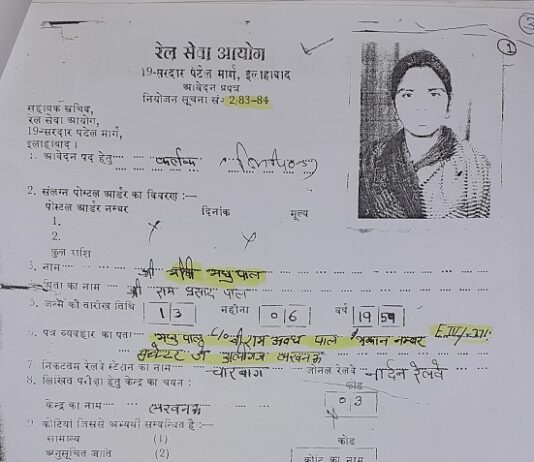 रेल सेवा आयोग
19-सरदार पटेल मार्ग, इलाहाबाद
आवेदन प्रपत्र
नियोजन सूचना सं० 2/83-84
1
सहायक सचिव,
रेल सेवा आयोग,
19-सरदार पटेल मार्ग,
इलाहाबाद।
1. आवेदन पद हेतु क्लर्क
2. संलग्न पोस्टल आर्डर का विवरण :—
पोस्टल आर्डर नम्बर दिनांक मूल्य
1.
2.
कुल राशि
3. नाम श्री मधु पाल
पिता का नाम श्री राम प्रसाद पाल
5. जन्म की तारीख तिथि 13 महीना 06 वर्ष 1959
6. पत्र व्यवहार का पता मधु पाल C/o श्री राम अवध पाल मकान नम्बर
सेक्टर अलीगंज लखनऊ
7. निकटतम रेलवे स्टेशन का नाम चारबाग जोनल रेलवे नार्दन रेलवे
8. लिखित परीक्षा हेतु केन्द्र का चयन : कोड
03
केन्द्र का नाम लखनऊ
9. कोटियां जिससे अभ्यर्थी सम्बन्धित है :— कोड
सामान्य (1)
अनुसूचित जाति (2) कोटि का नाम